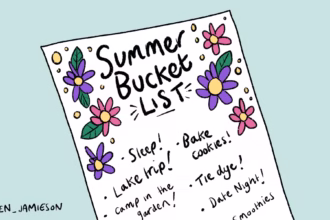 Summer
Bucket
LIST
· Sleep!
· Lake trip!
· camp in the
garden!
· Bake
cookies!
· Tie dye!
· Date Night!
EN_JAMIESON